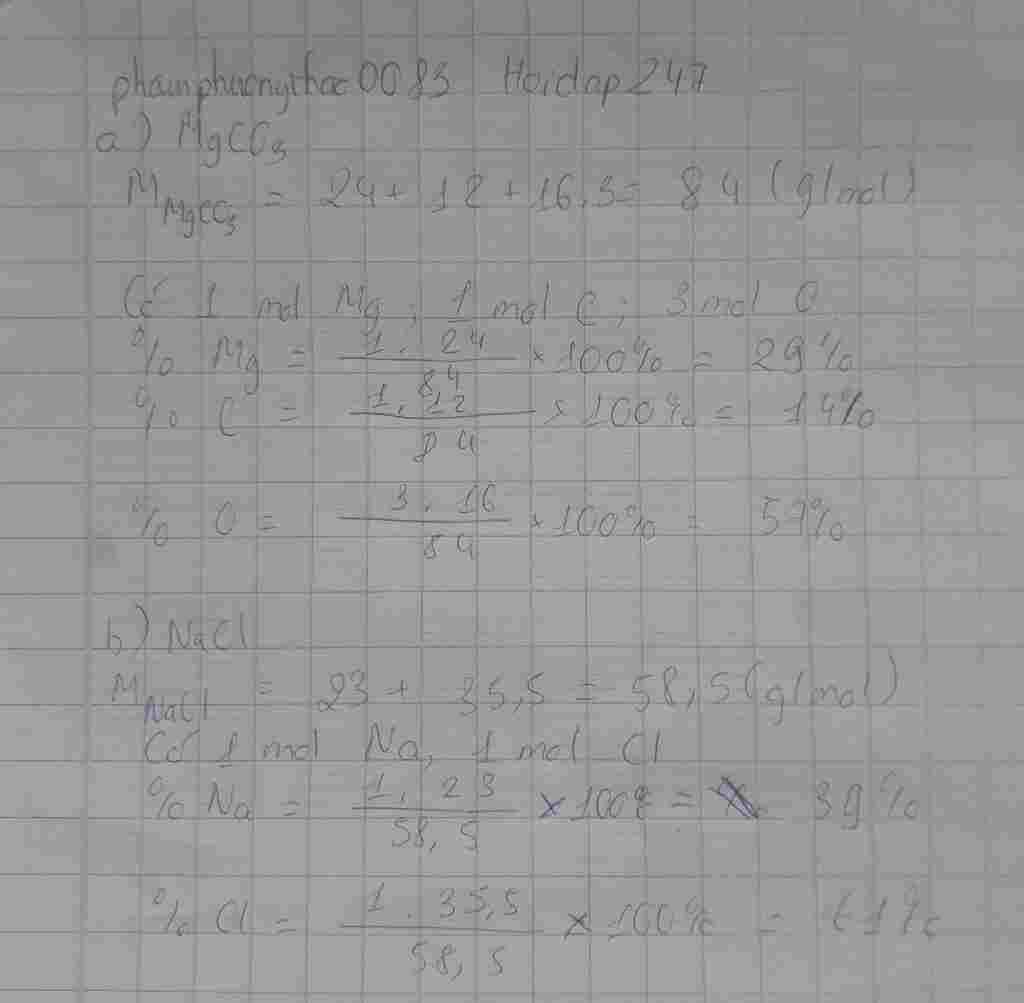 phamphuongthao0083 Hoidap247
a) MgCO3
M MgCO3 = 24 + 12 + 16.3 = 84 (g/mol)
Có 1 mol Mg; 1 mol C; 3 mol O
% Mg = 1.24/84 × 100% = 29%
% C = 1.12/84 × 100% = 14%
% O = 3.16/84 × 100% = 57%
b) NaCl
M NaCl = 23 + 35,5 = 58,5 (g/mol)
Có 1 mol Na, 1 mol Cl
% Na = 1.23/58,5 × 100% = 39%
% Cl = 1.35,5/58,5 × 100% = 61%